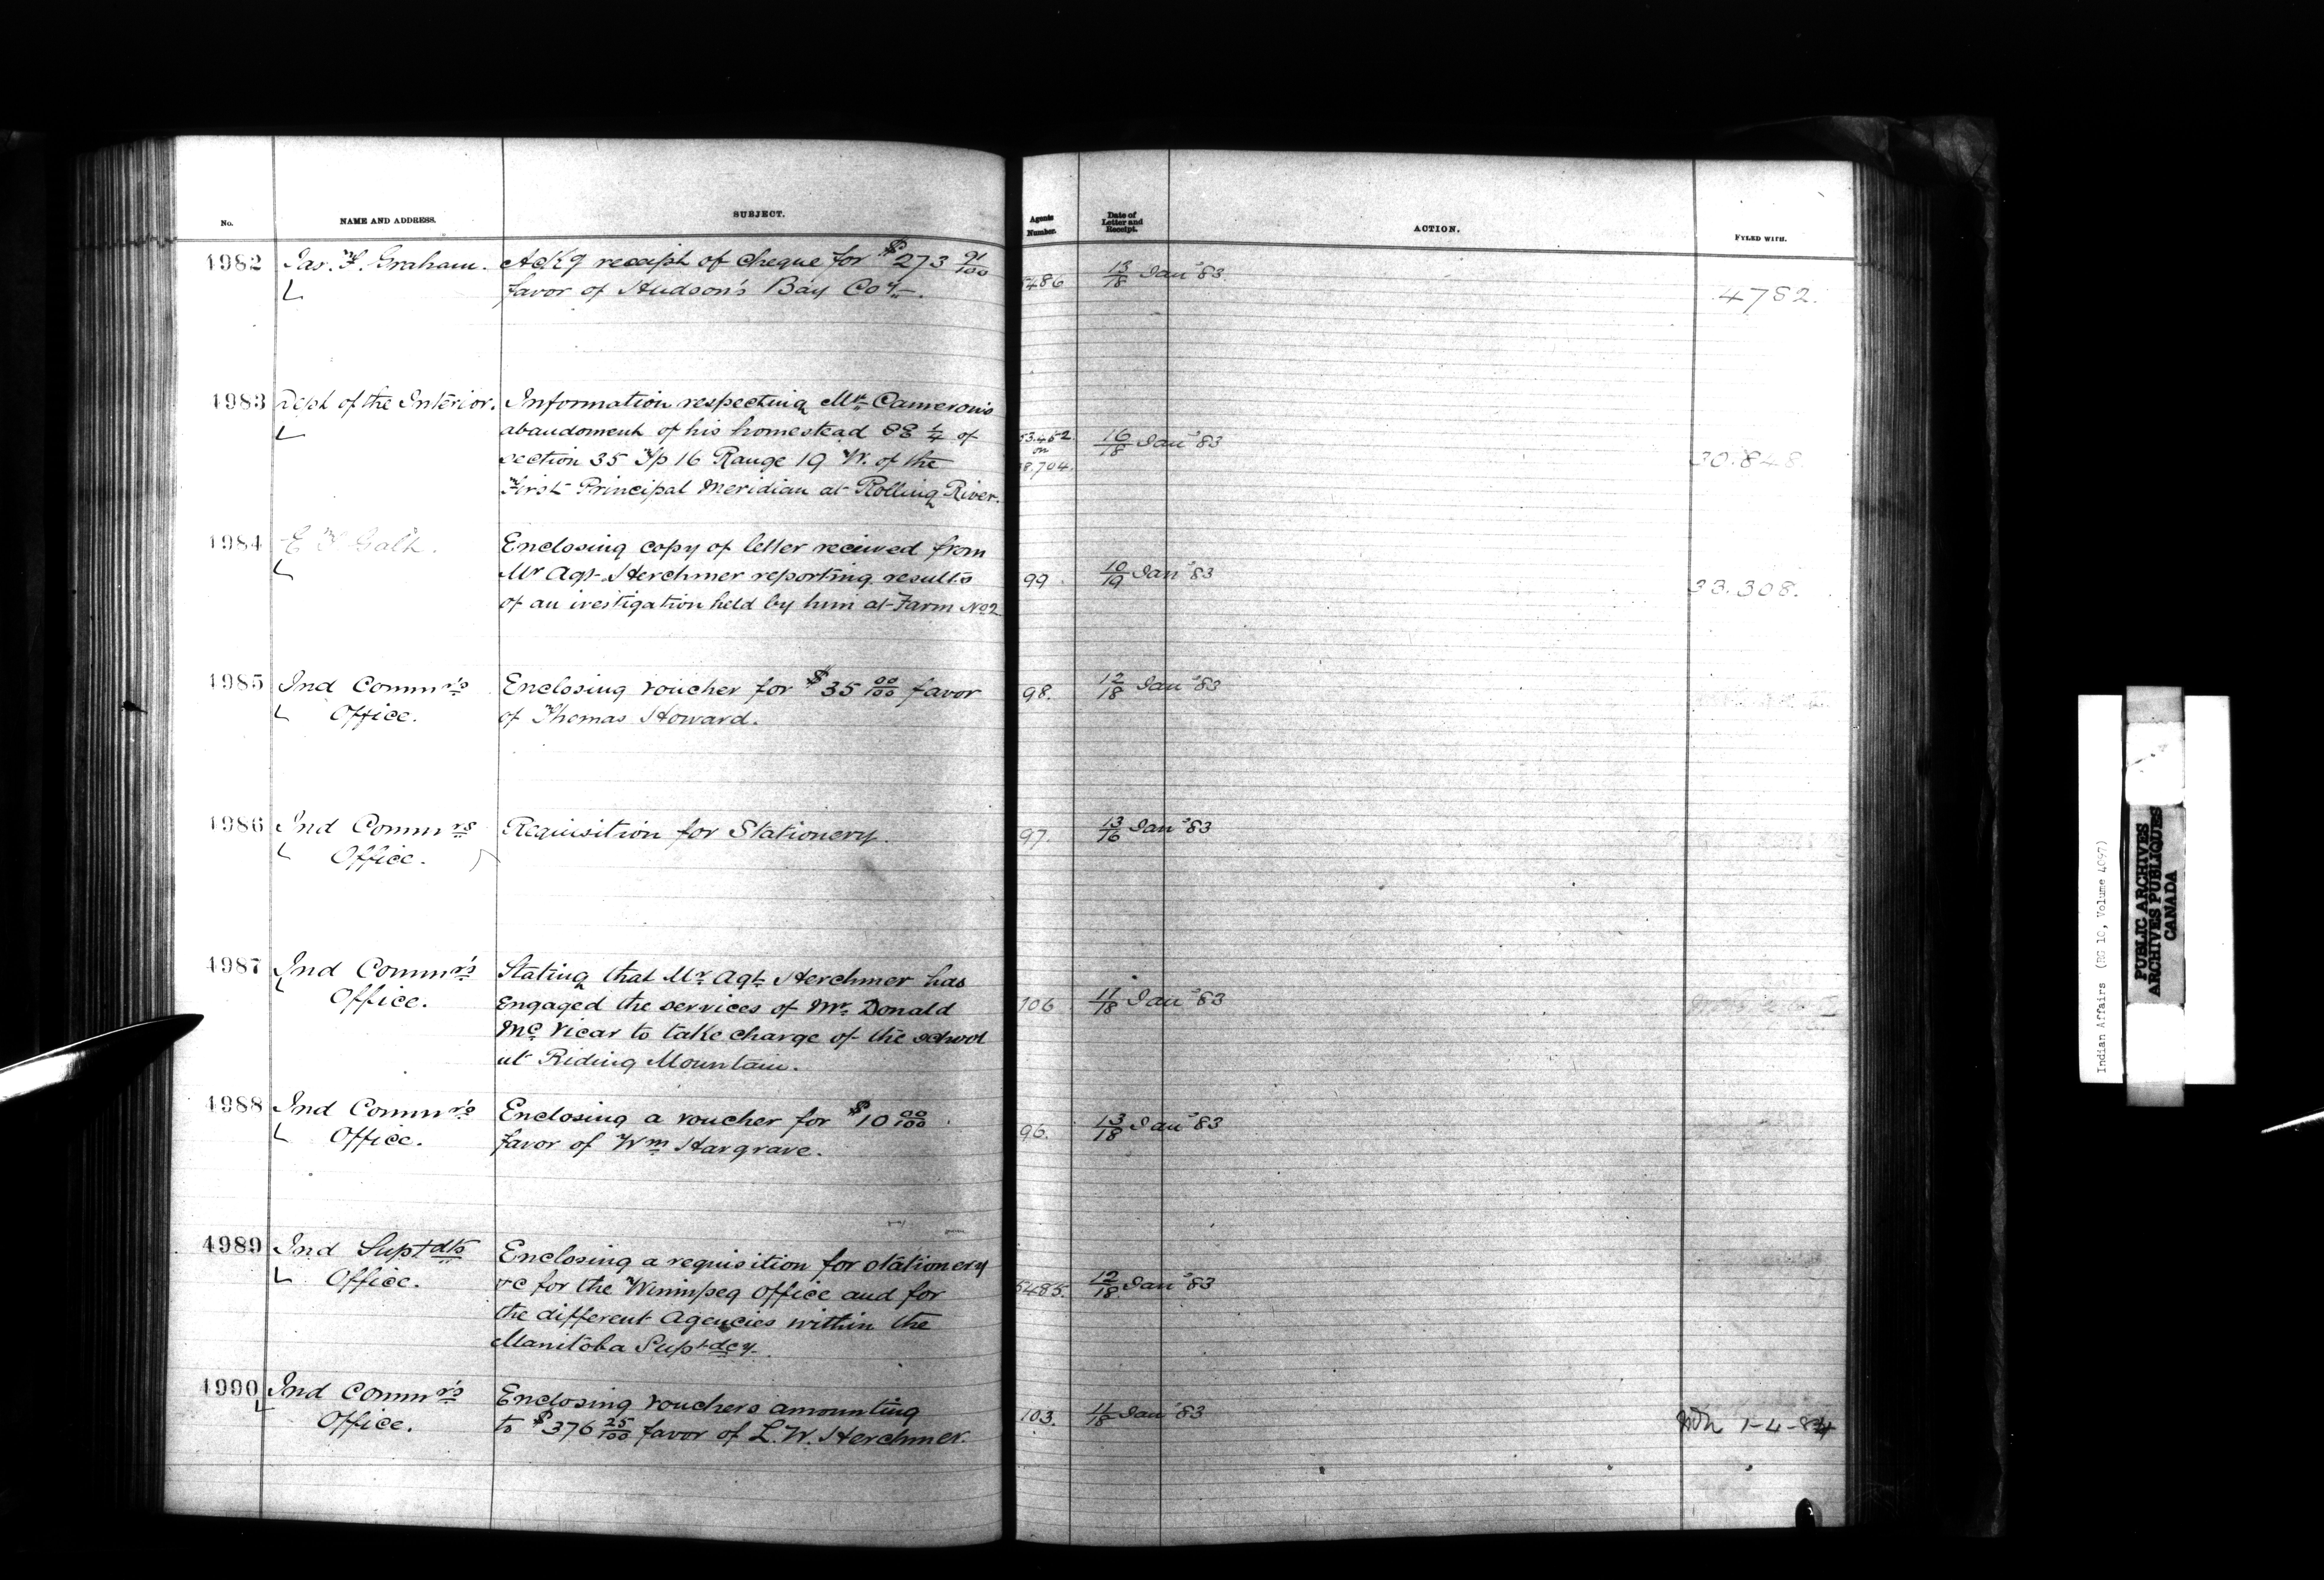 No. NAME AND ADDRESS. SUBJECT. Agents Number. Date of Letter and Receipt. ACTION. FYLED WITH.
4982 Jas. F. Graham. Ackg receipt of cheque for $273 91/100
favor of Hudson's Bay Coy. 5486 13/18 Jany '83 4782.
4983 Dept of the Interior. Information respecting Mr Cameron's
abandoment of his homestead SE 1/4 of
section 35 Tp 16 Range 19 W. of the
First Principal Meridian at Rolling River.
53.452 on 38.704. 16/18 Jany '83 30.848.
4984 E T Galt. Enclosing copy of letter received from
Mr Agt Herchmer reporting results
of an ivestigation held by him at Farm No 2
99. 10/19 Jany '83 33.308.
4985 Ind Commr's Office. Enclosing voucher for $35 00/100 favor
of Thomas Howard. 98. 12/18 Jany '83
4986 Ind Commrs Office. Requisition for Stationery. 97. 13/16 Jany '83
4987 Ind Commr's Office. Stating that Mr Agt Herchmer has
Engaged the services of Mr. Donald
McVicar to take charge of the school
at Riding Mountain.
106 11/18 Jany '83
4988 Ind Commr's Office. Enclosing a voucher for $10 00/100
favor of Wm Hargrave. 96. 13/18 Jany '83
4989 Ind Suptdts Office. Enclosing a requisition for stationery
&c for the Winnipeg Office and for
the different Agencies within the
Manitoba Suptdcy.
5485. 12/18 Jany '83
4990 Ind Commr's Office. Enclosing vouchers amounting
to $376 25/100 favor of L. W. Herchmer.
103. 11/18 Jany '83 1-4-84
Indian Affairs (RG 10, Volume 4097)
PUBLIC ARCHIVES
ARCHIVES PUBLIQUES
CANADA